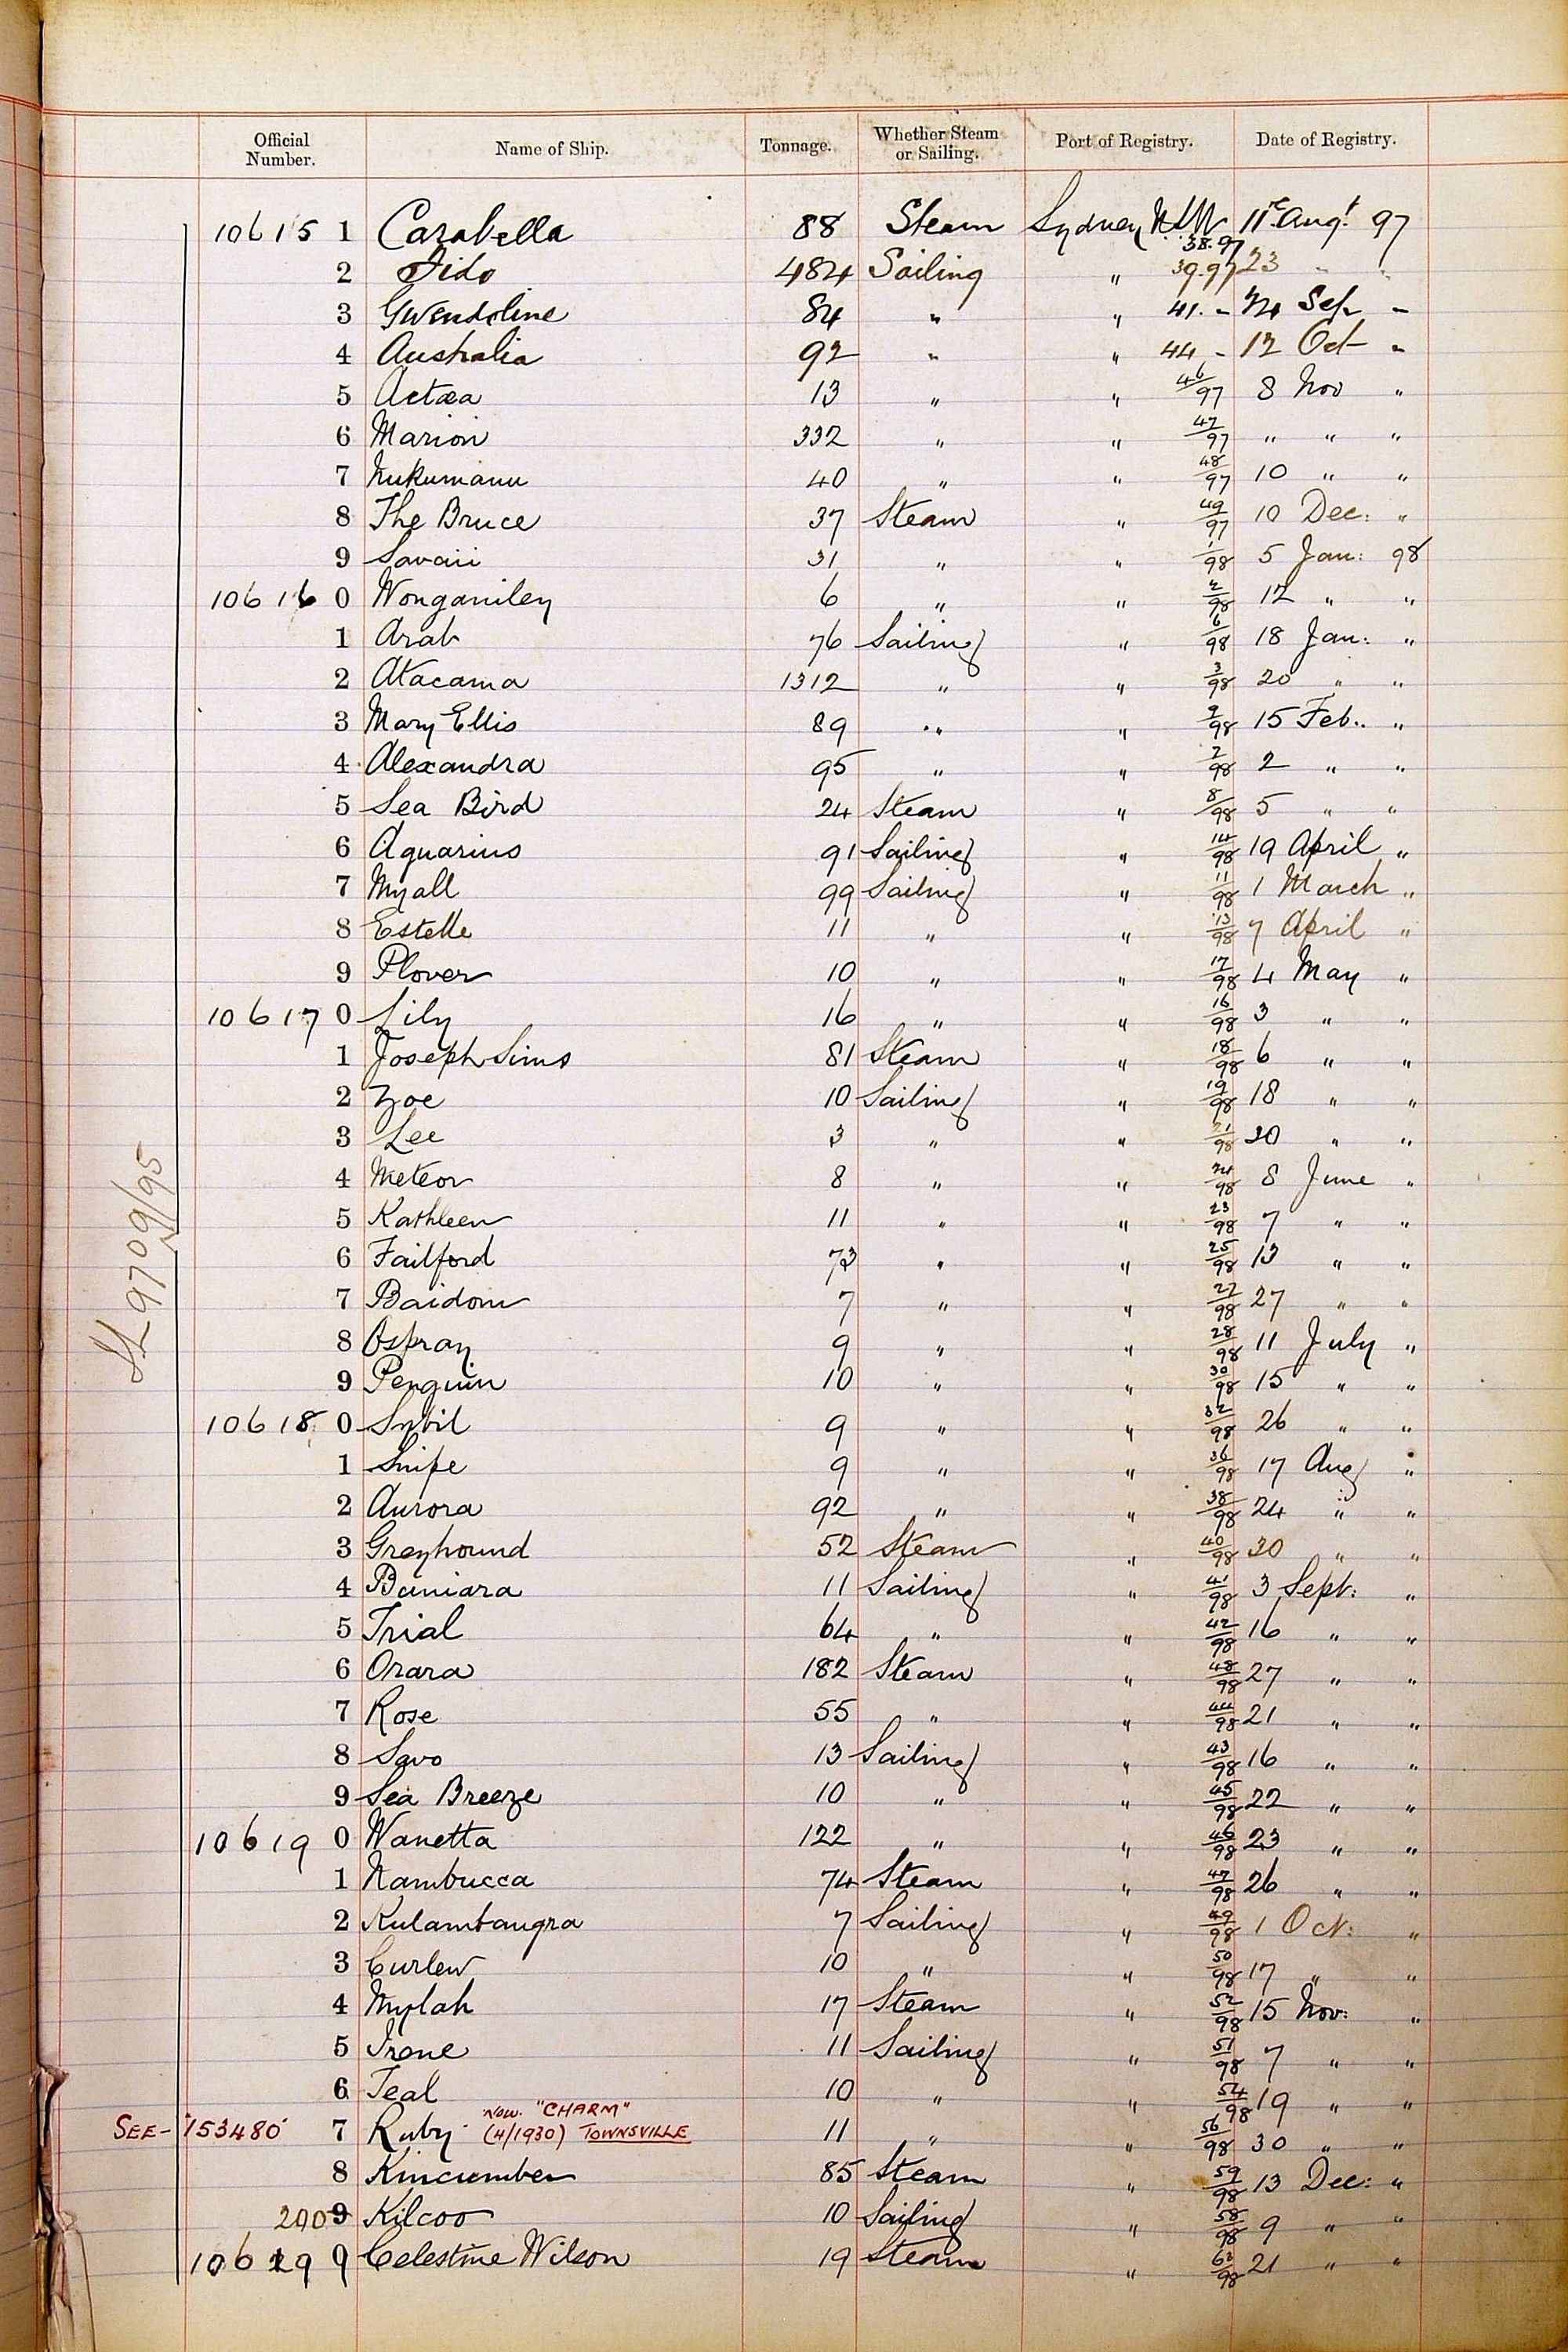 Official Number. Name of Ship. Tonnage. Whether Steam or Sailing. Port of Registry. Date of Registry.
10615 1 Carabella 88 Steam Sydney NSW 38.97 11th Augt 97
2 Fido 484 Sailing " 39.97 23 " "
3 Gwendoline 84 " " 41. " 24 Sep "
4 Australia 92 " " 44 " 12 Oct "
5 Actæa 13 " " 46/97 8 Nov "
6 Marion 332 " " 47/97 " " "
7 Nukumanu 40 " " 48/97 10 " "
8 The Bruce 37 Steam " 49/97 10 Dec: "
9 Savaii 31 " " 1/98 5 Jan: 98
10616 0 Wonganiley 6 " " 2/98 12 " "
1 Arab 76 Sailing " 6/98 18 Jan: "
2 Atacama 1312 " " 3/98 20 " "
3 Mary Ellis 89 " " 9/98 15 Feb.. "
4 Alexandra 95 " " 7/98 2 " "
5 Sea Bird 24 Steam " 8/98 5 " "
6 Aquarius 91 Sailing " 14/98 19 April "
7 Myall 99 Sailing " 11/98 1 March "
8 Estelle 11 " " 13/98 7 April "
9 Plover 10 " " 17/98 4 May "
10617 0 Lily 16 " " 16/98 3 " "
1 Joseph Sims 81 Steam " 18/98 6 " "
2 Zoe 10 Sailing " 19/98 18 " "
3 Lee 3 " " 21/98 20 " "
4 Meteor 8 " " 24/98 8 June "
5 Kathleen 11 " " 23/98 7 " "
6 Failford 73 " " 25/98 13 " "
7 Baidom 7 " " 27/98 27 " "
8 Ospray 9 " " 28/98 11 July "
9 Penguin 10 " " 30/98 15 " "
10618 0 Sybil 9 " " 32/98 26 " "
1 Snipe 9 " " 36/98 17 Aug "
2 Aurora 92 " " 38/98 24 " "
3 Greyhound 52 Steam " 40/98 30 " "
4 Buniara 11 Sailing " 41/98 3 Sept: "
5 Trial 64 " " 42/98 16 " "
6 Orara 182 Steam " 48/98 27 " "
7 Rose 55 " " 44/98 21 " "
8 Savo 13 Sailing " 43/98 16 " "
9 Sea Breeze 10 " " 45/98 22 " "
10619 0 Wanetta 122 " " 46/98 23 " "
1 Nambucca 74 Steam " 47/98 26 " "
2 Kulambangra 7 Sailing " 49/98 1 Oct: "
3 Curlew 10 " " 50/98 17 " "
4 Mylah 17 Steam " 52/98 15 Nov: "
5 Irene 11 Sailing " 51/98 7 " "
6 Teal 10 " " 54/98 19 " "
NOW. "CHARM"
SEE- 153480 7 Ruby (4/1930) TOWNSVILLE 11 " " 56/98 30 " "
8 Kincumber 85 Steam " 59/98 13 Dec: "
9 Kilcoo 10 Sailing " 58/98 9 " "
200
10619 0 Celestine Wilson 19 Steam " 62/98 21 " "
9709/95